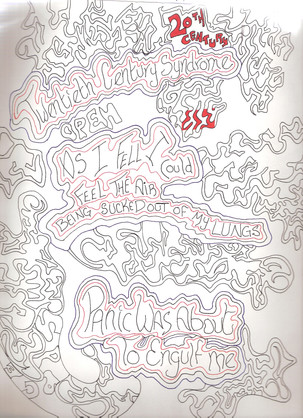 20TH
CENTURY
Twentieth Century Syndrome
OPEN
AS I FELL I Could
FEEL THE AIR
BEING SUCKED OUT OF MY LUNGS
Panic Was About
To Engulf me